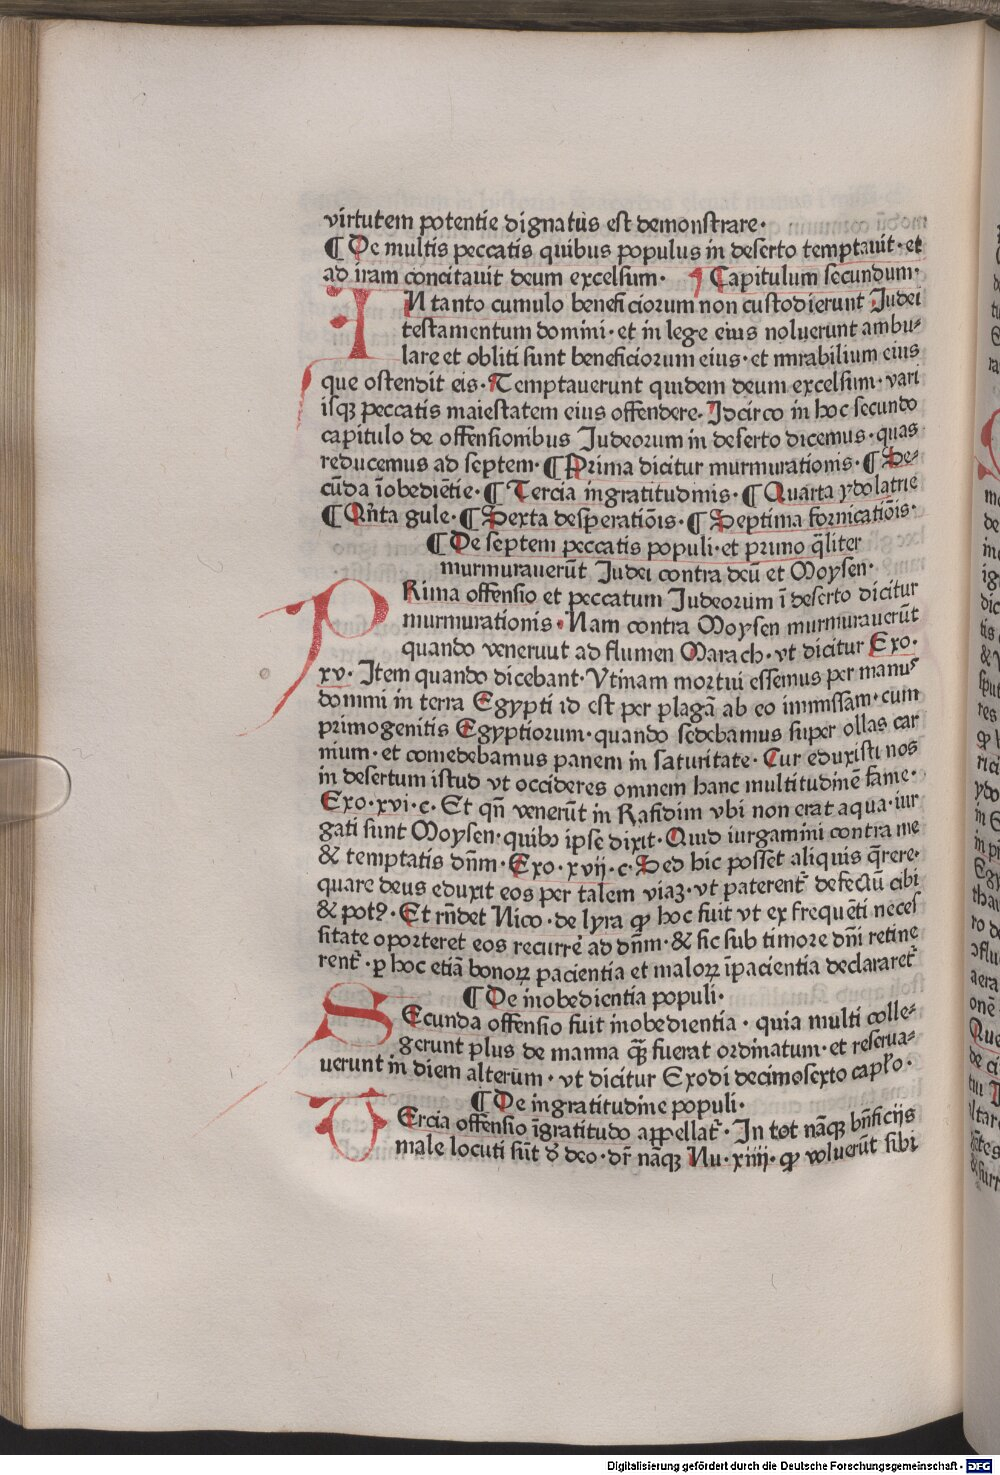 virtutem potentie dignatus est demonstrare·
¶ De multis peccatis quibus populus in deserto temptauit·et
ad iram concitauit deum excelsum· ¶ Capitulum secundum·
IN tanto cumulo beneficiorum non custodierunt Judei
testamentum domini·et in lege eius noluerunt ambu-
lare et obliti sunt beneficiorum eius·et mirabilium eius
que ostendit eis·Temptauerunt quidem deum excelsum·vari
isqꝫ peccatis maiestatem eius offendere·Jdcirco in hoc secundo
capitulo de offensionibus Judeorum in deserto dicemus·quas
reducemus ad septem·¶ Prima dicitur murmurationis·¶ Se-
cūda īobediētie·¶ Tercia ingratitudinis·¶ Quarta ydolatrie
¶ Qn̄ta gule·¶ Sexta desperatiōis·¶ Septima fornicatiōis·
¶ De septem peccatis populi·et primo q̄liter
murmurauerūt Judei contra deū et Moysen·
PRima offensio et peccatum Judeorum ī deserto dicitur
murmurationis·Nam contra Moysen murmurauerūt
quando veneruut ad flumen Marach·vt dicitur Exo·
xv·Item quando dicebant·Vtinam mortui essemus per manuꝰ
domini in terra Egypti id est per plagā ab eo immissam·cum
primogenitis Egyptiorum·quando sedebamus super ollas car
nium·et comedebamus panem in saturitate·Cur eduxisti nos
in desertum istud vt occideres omnem hanc multitudinē fame·
Exo·xvi·c·Et qn̄ venerūt in Rafidim vbi non erat aqua·iur
gati sunt Moysen·quibo ipse dixit·Quid iurgamini contra me
& temptatis dn̄m·Exo·xvij·c·Sed hic posset aliquis q̄rere·
quare deus eduxit eos per talem viaꝫ·vt paterent᷑ defectū cibi
& potꝰ·Et rn̄det Nico·de lyra ꝙ hoc fuit vt ex frequēti neces
sitate oporteret eos recurrē ad dn̄m·& sic sub timore dn̄i retine
rent᷑·ꝑ hoc etiā bonoꝝ pacientia et maloꝝ īpacientia declararet᷑
¶ De inobedientia populi·
SEcunda offensio fuit inobedientia·quia multi colle-
gerunt plus de manna qꝫ̄ fuerat ordinatum·et reserua-
uerunt in diem alterum·vt dicitur Exodi decimosexto capło·
¶ De ingratitudine populi·
TErcia offensio īgratitudo appellat᷑·In tot nāqꝫ bn̄ficijs
male locuti sūt de deo·dr̄ nāqꝫ Nu·xiiij·ꝙ voluerūt sibi
Digitalisierung gefördert durch die Deutsche Forschungsgemeinschaft · DFG